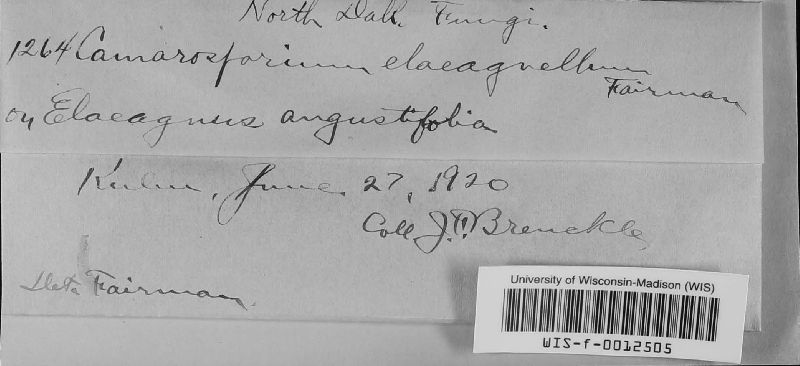 North Dak. Fungi.
1264 Camarosporium elaeagnellum
Fairman
on Elaeagnus angustifolia
Kulm, June 27, 1920
Coll J.F. Brenckle
Det. Fairman.
University of Wisconsin-Madison (WIS)
WIS-f-0012505